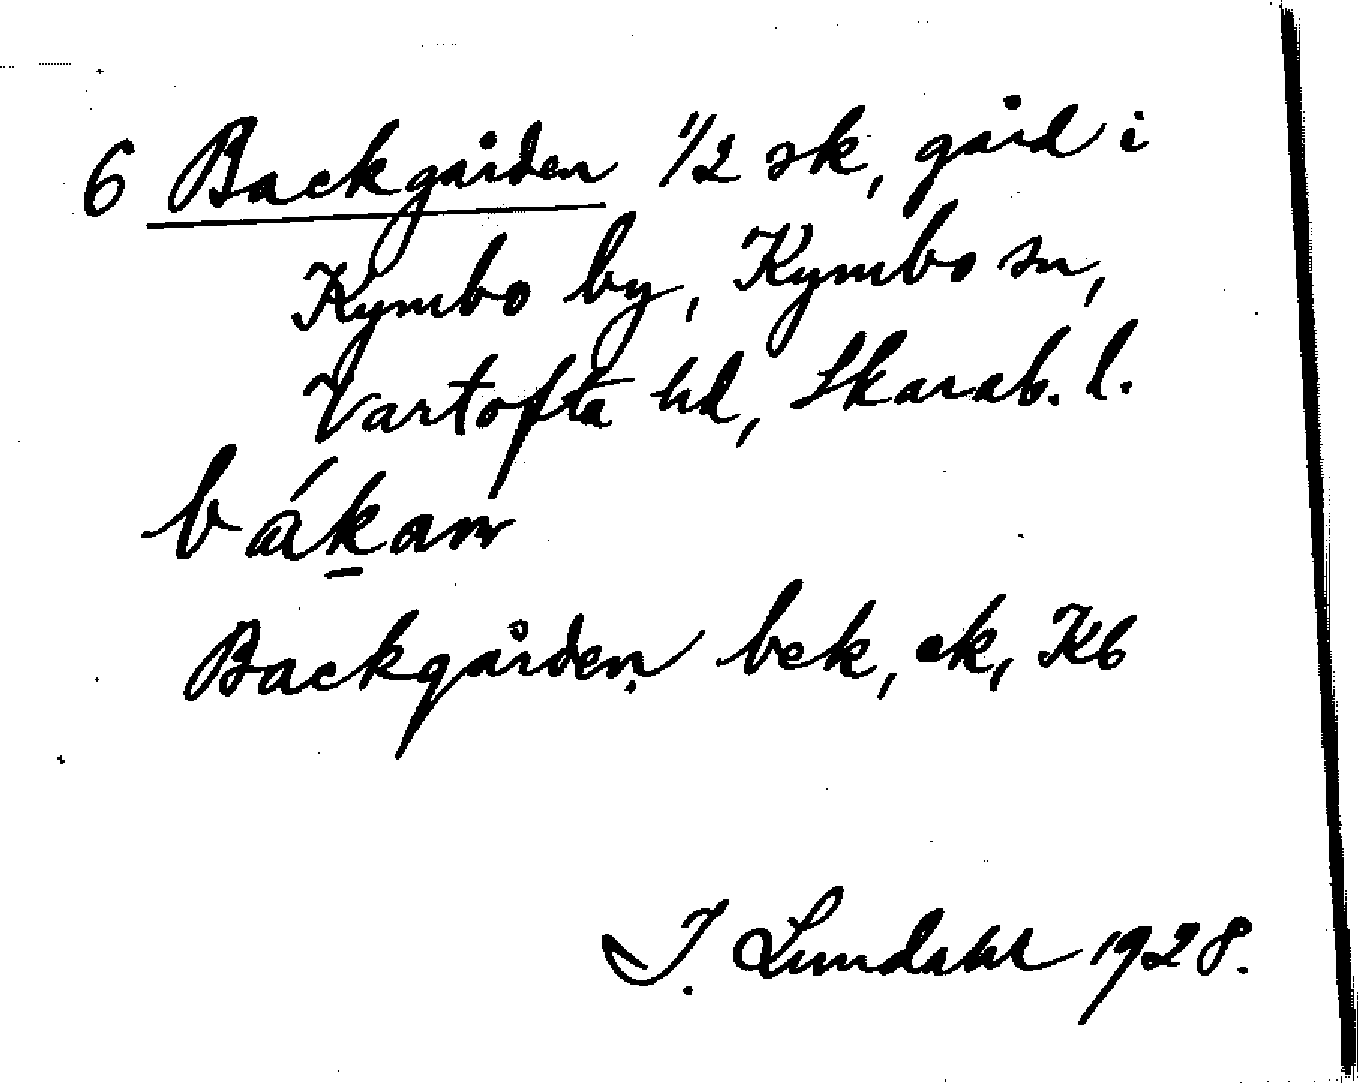 6 Backgården 1/2 sk, gård i
Kymbo by, Kymbo sn,
Vartofta hd, Skarab. l.
Backgården bek, ek, Kb
I. Lundahl 1928.